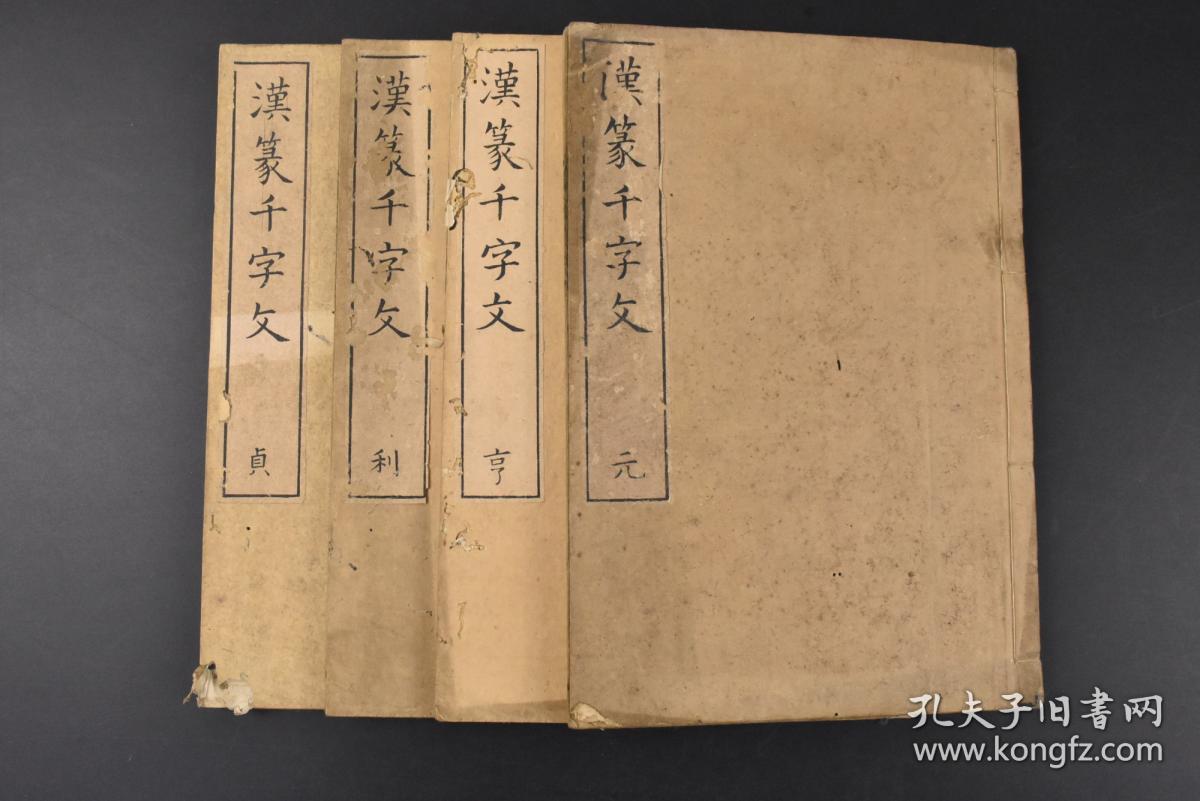 漢篆千字文 元
漢篆千字文 亨
漢篆千字文 利
漢篆千字文 貞
孔夫子旧書网
www.kongfz.com